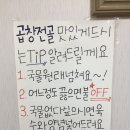 곱창전골 맛있게드시
는TiP 알려드릴께요
1. 국물원래넘쳐요~!
2. 어느정도끓으면불OFF
3. 국물없다싶으시면육
수와양념넣어드려요